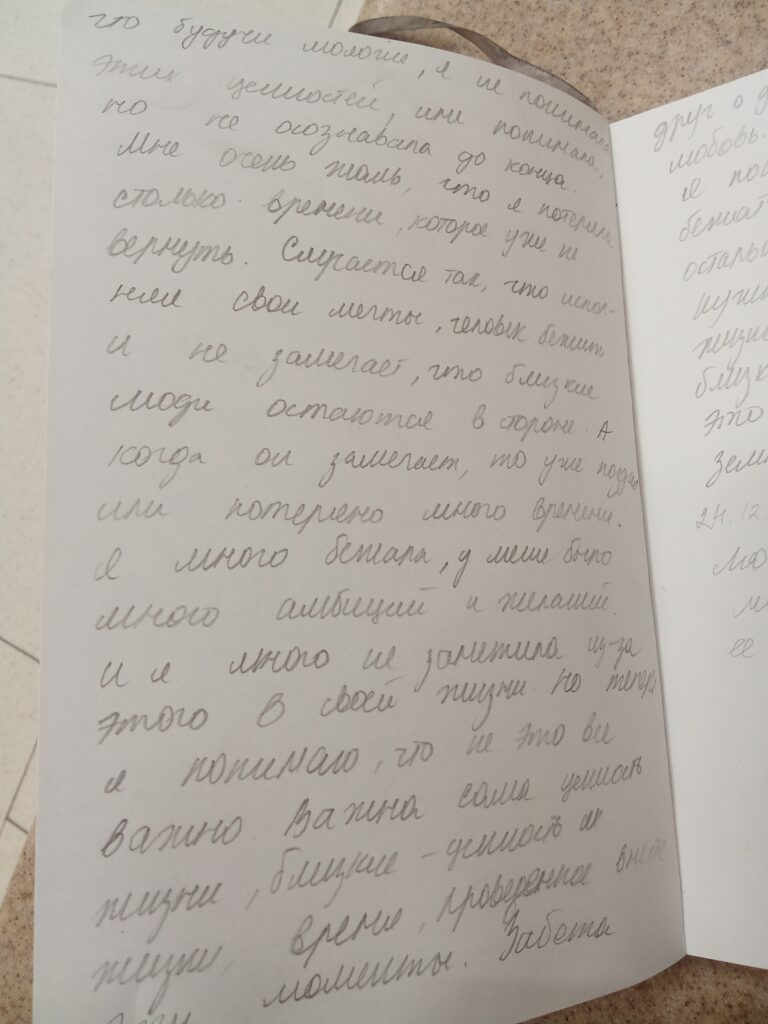 что будучи моложе, я не понимала
этих ценностей, или понимала,
но не осознавала до конца.
Мне очень жаль, что я потеряла
столько времени, которое уже не
вернуть. Случается так, что испол-
няя свои мечты, человек бежит
и не замечает, что близкие
люди остаются в стороне. А
когда он замечает, то уже поздно
или потеряно много времени.
Я много бежала, у меня было
много амбиций и желаний.
И я много не заметила из-за
этого в своей жизни. Но теперь
я понимаю, что не это все
важно. Важна сама ценность
жизни, близкие - ценность их
жизни, время, проведенное вместе.
моменты. Забота
друг о д
любовь.
я пон
бежат
осталь
нужн
жизн
близк
это
земл
24.12